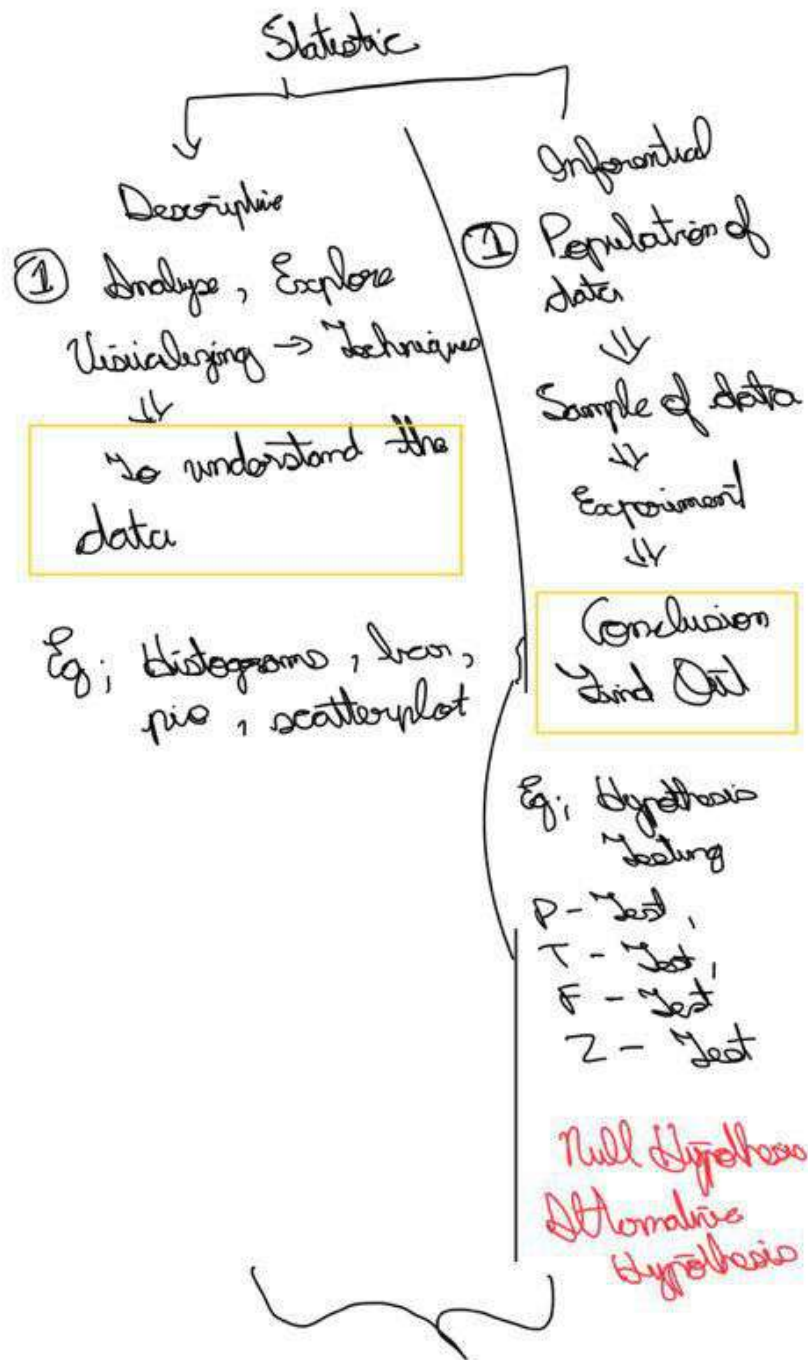 Statistic
Descriptive
① Analyse, Explore
Visualizing → Techniques
⇓
To understand the
data
Eg; Histograms, bar,
pie, scatterplot
Inferential
① Population of
data
⇓
Sample of data
⇓
Experiment
⇓
Conclusion
Find Out
Eg; Hypothesis
Testing
P - Test,
T - Test,
F - Test
Z - Test
Null Hypothesis
Alternative
Hypothesis